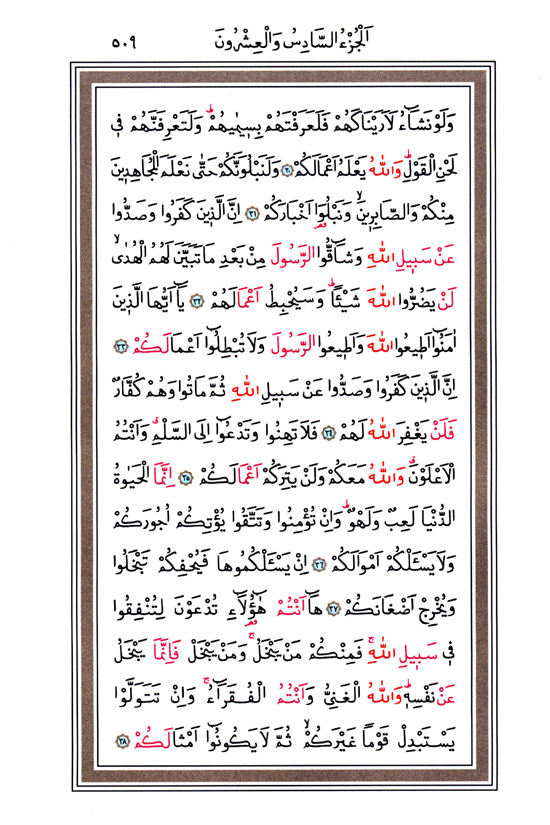 اَلْجُزْءُ السَّادِسُ وَالْعِشْرُونَ ٥٠٩
وَلَوْ نَشَٓاءُ لَاَرَيْنَاكَهُمْ فَلَعَرَفْتَهُمْ بِسِيمٰيهُمْۜ وَلَتَعْرِفَنَّهُمْ ف۪ي
لَحْنِ الْقَوْلِۜ وَاللّٰهُ يَعْلَمُ اَعْمَالَكُمْ ٣٠ وَلَنَبْلُوَنَّكُمْ حَتّٰى نَعْلَمَ الْمُجَاهِد۪ينَ
مِنْكُمْ وَالصَّابِر۪ينَۙ وَنَبْلُوَ۬ا اَخْبَارَكُمْ ٣١ اِنَّ الَّذ۪ينَ كَفَرُوا وَصَدُّوا
عَنْ سَب۪يلِ اللّٰهِ وَشَٓاقُّوا الرَّسُولَ مِنْ بَعْدِ مَا تَبَيَّنَ لَهُمُ الْهُدٰىۙ
لَنْ يَضُرُّوا اللّٰهَ شَيْـًٔاۜ وَسَيُحْبِطُ اَعْمَالَهُمْ ٣٢ يَٓا اَيُّهَا الَّذ۪ينَ
اٰمَنُٓوا اَط۪يعُوا اللّٰهَ وَاَط۪يعُوا الرَّسُولَ وَلَا تُبْطِلُٓوا اَعْمَالَكُمْ ٣٣
اِنَّ الَّذ۪ينَ كَفَرُوا وَصَدُّوا عَنْ سَب۪يلِ اللّٰهِ ثُمَّ مَاتُوا وَهُمْ كُفَّارٌ
فَلَنْ يَغْفِرَ اللّٰهُ لَهُمْ ٣٤ فَلَا تَهِنُوا وَتَدْعُٓوا اِلَى السَّلْمِۗ وَاَنْتُمُ
الْاَعْلَوْنَۗ وَاللّٰهُ مَعَكُمْ وَلَنْ يَتِرَكُمْ اَعْمَالَكُمْ ٣٥ اِنَّمَا الْحَيٰوةُ
الدُّنْيَا لَعِبٌ وَلَهْوٌۜ وَاِنْ تُؤْمِنُوا وَتَتَّقُوا يُؤْتِكُمْ اُجُورَكُمْ
وَلَا يَسْـَٔلْكُمْ اَمْوَالَكُمْ ٣٦ اِنْ يَسْـَٔلْكُمُوهَا فَيُحْفِكُمْ تَبْخَلُوا
وَيُخْرِجْ اَضْغَانَكُمْ ٣٧ هَٓا اَنْتُمْ هٰٓؤُ۬لَٓاءِ تُدْعَوْنَ لِتُنْفِقُوا
ف۪ي سَب۪يلِ اللّٰهِۚ فَمِنْكُمْ مَنْ يَبْخَلُۚ وَمَنْ يَبْخَلْ فَاِنَّمَا يَبْخَلُ
عَنْ نَفْسِه۪ۜ وَاللّٰهُ الْغَنِيُّ وَاَنْتُمُ الْفُقَرَٓاءُۚ وَاِنْ تَتَوَلَّوْا
يَسْتَبْدِلْ قَوْمًا غَيْرَكُمْۙ ثُمَّ لَا يَكُونُٓوا اَمْثَالَكُمْ ٣٨